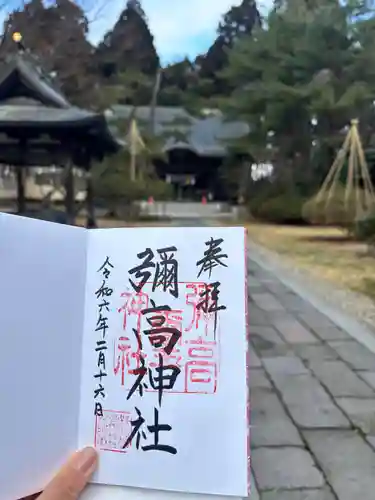 奉拝
彌高神社
令和六年二月十六日
彌高
神社